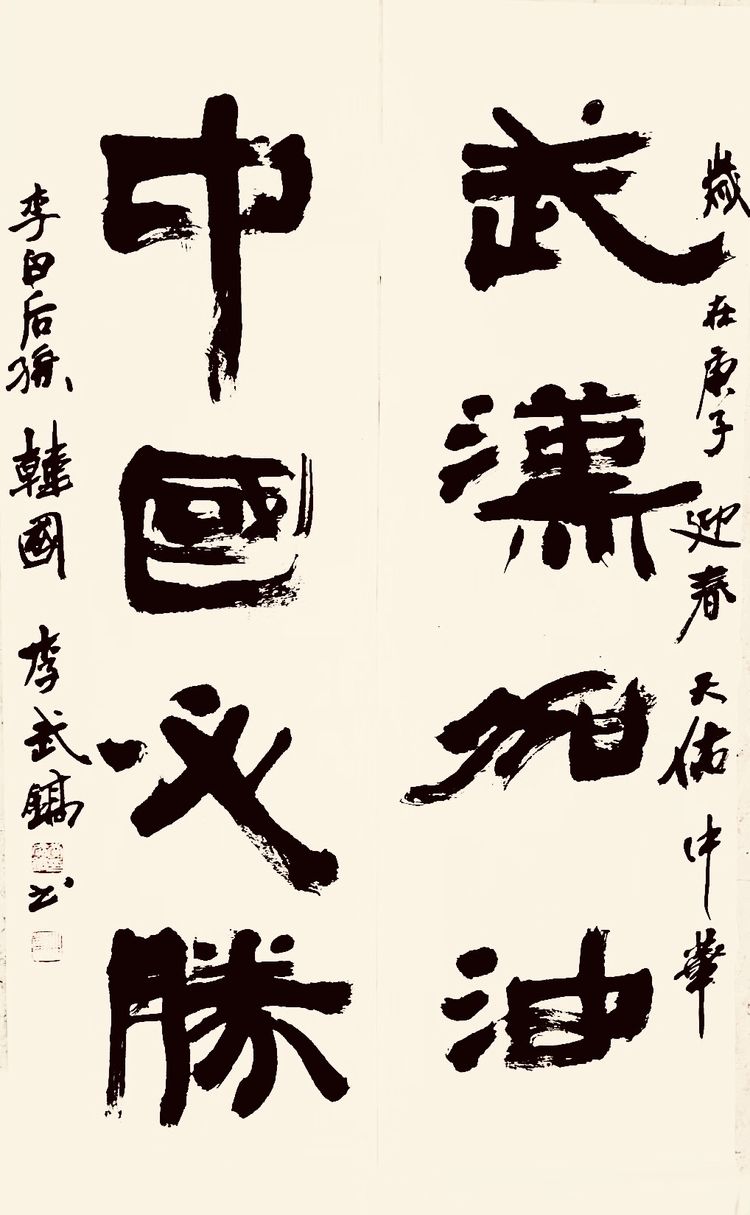 歲在庚子迎春天佑中華
武漢加油
中國必勝
李白后孫韓國李武鎬书